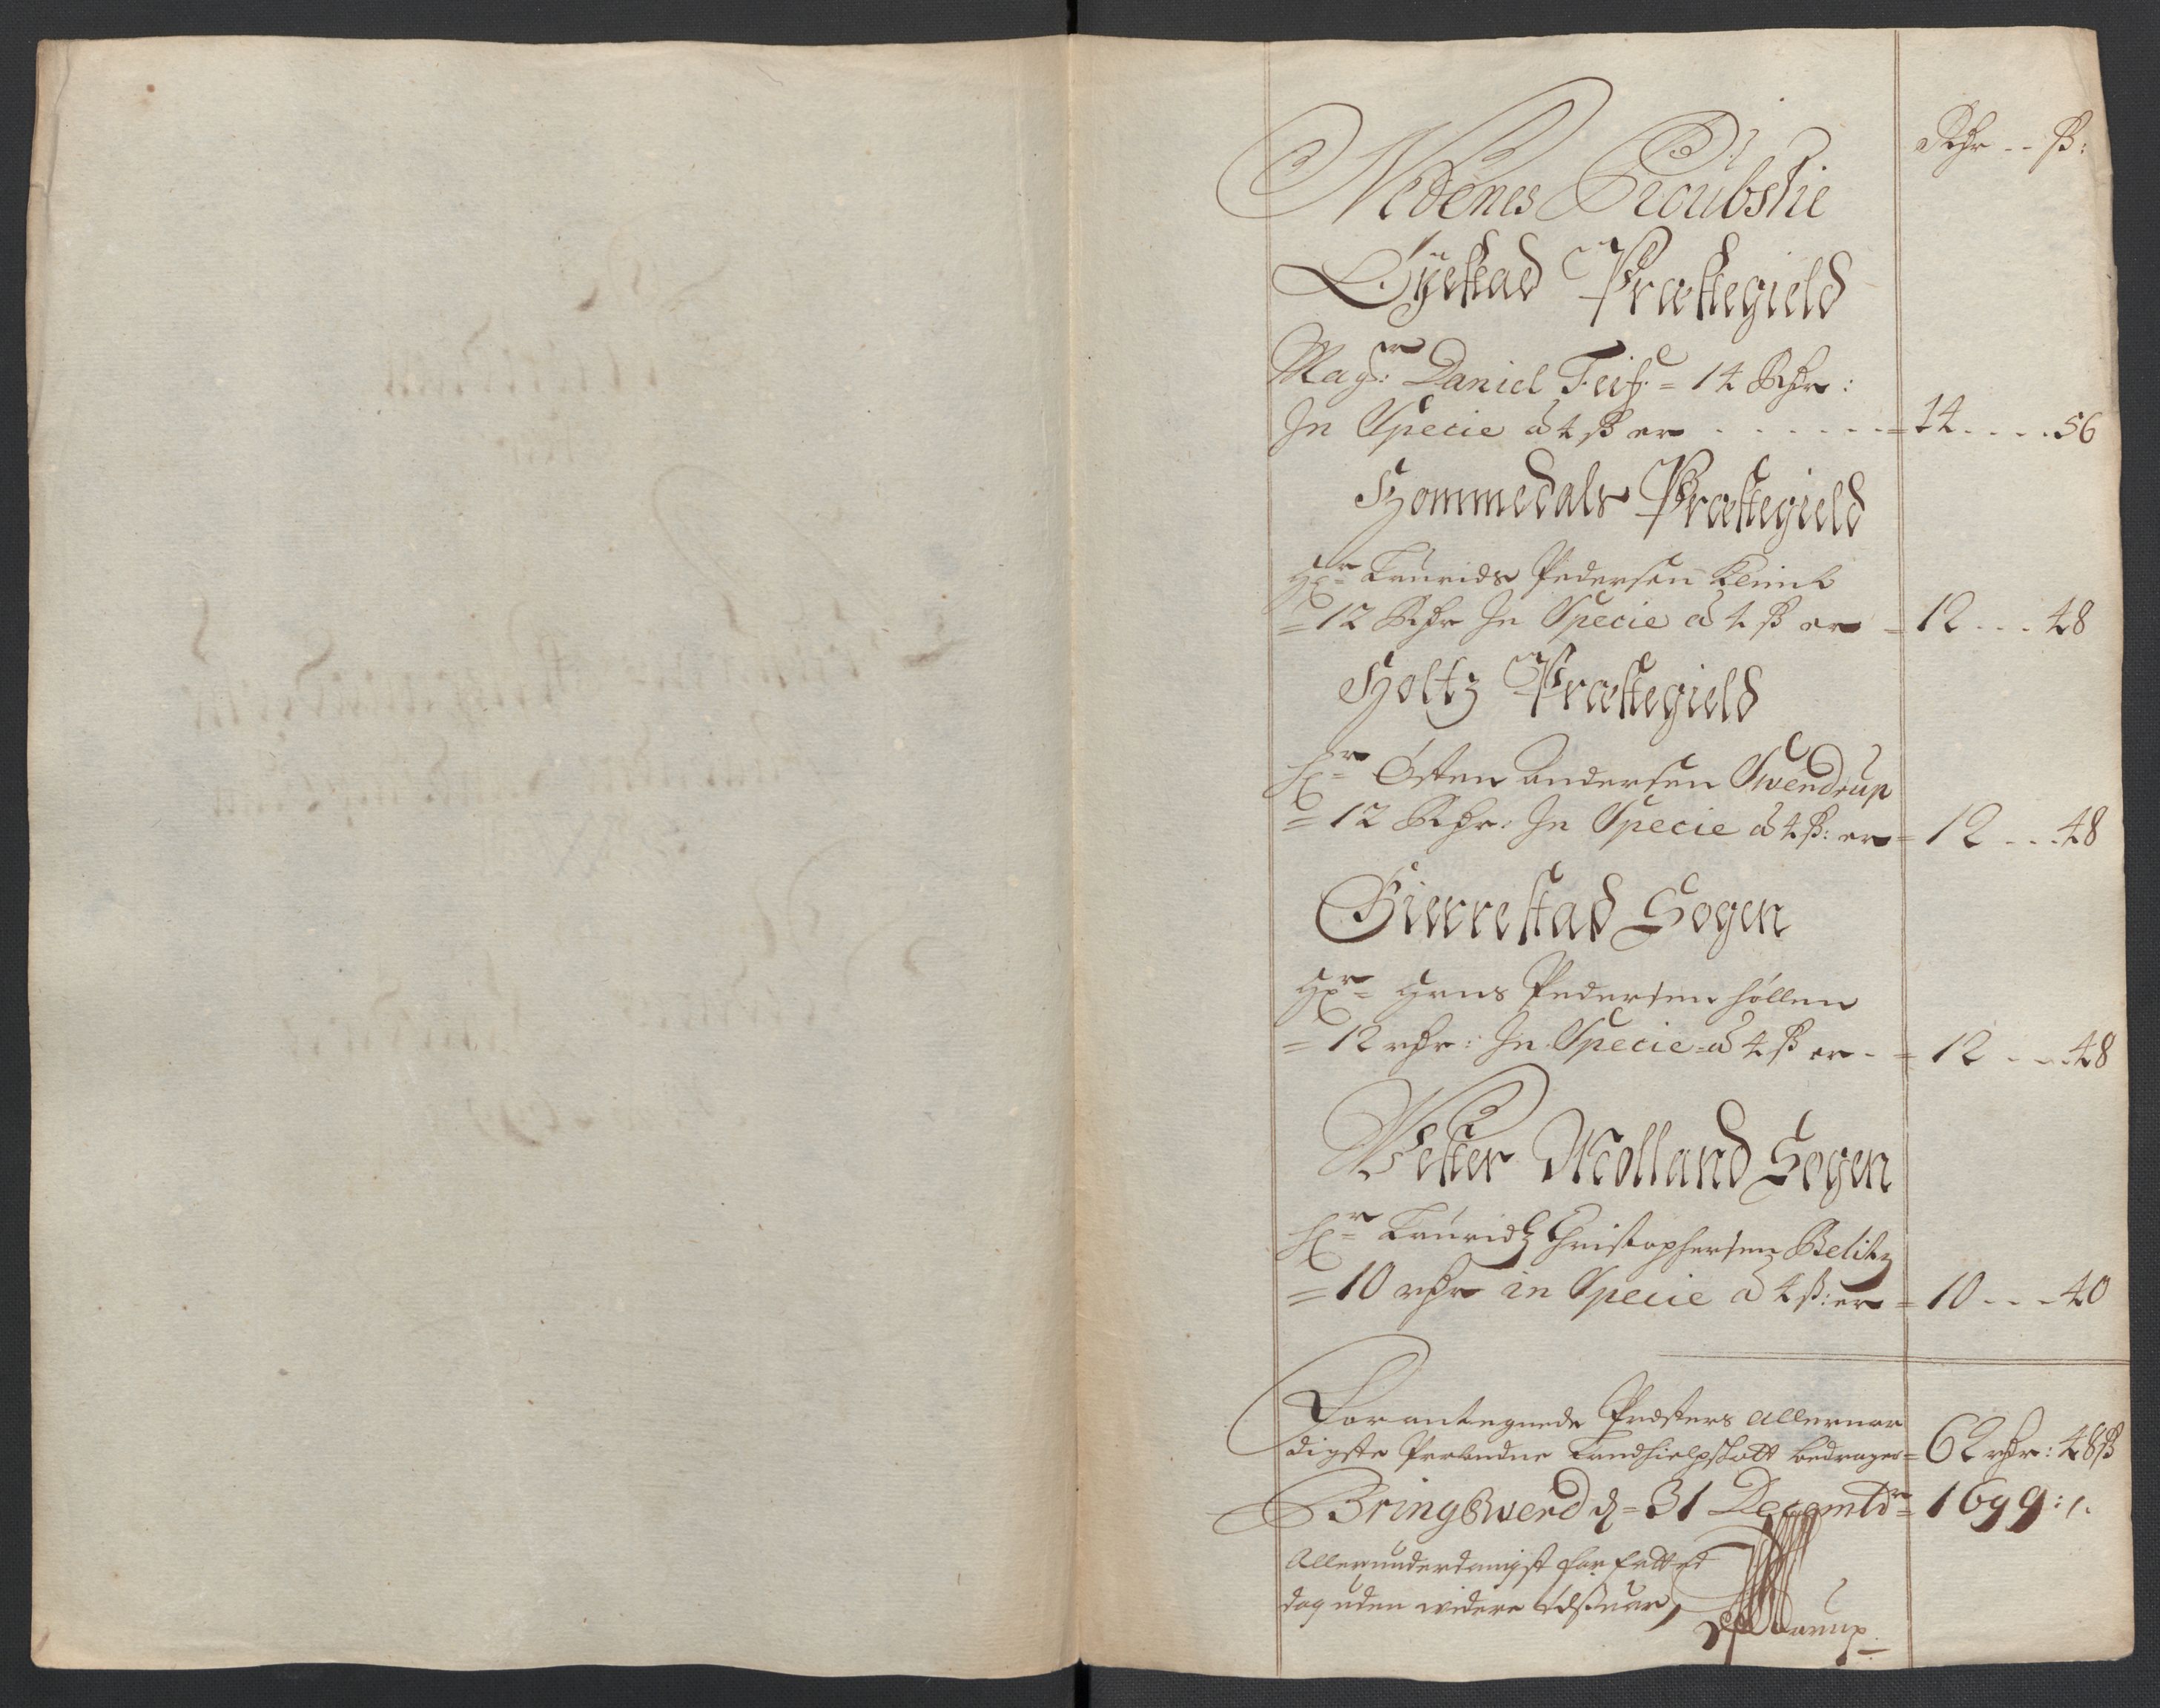 Rdr -- ß:
Nedenes Proubstie
Øyestad Præstegield
Magr: Daniel Teis: = 14 Rdr:
In Specie à 4 ß er - - - - - - = 14 - - - - 56
Hommedals Præstegield
Hr = Laurids Pedersen
= 12 Rdr In Specie à 4 ß er = 12 - - - 48
Holtz Præstegield
Hr = Østen Andersen Svendrup
= 12 Rdr: In Specie à 4 ß: er = 12 - - - 48
Gierrestad Sogen
Hr = Hans Pedersen Høllen
= 12 rdr: In Specie à 4 ß er - = 12 - - - 48
Vester Molland Sogen
Hr = Lauridz Christophersen Belitz
= 10 rdr in Specie à 4 ß: er = 10 - - - 40
Forantegnede Præsters allernaa
digste Paabudne Landhielpskatt bedrager = 62 rdr: 48 ß
Bringsverd d = 31 Decembr = 1699:
Allerunderdanigst forfatted
dog uden widere Ansuar